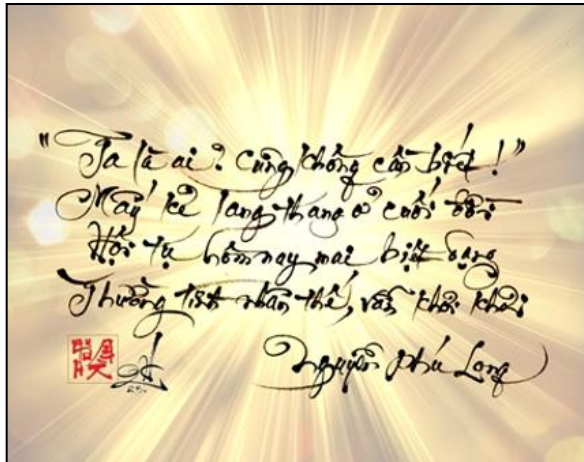 "Ta là ai? Cũng không cần biết!"
Mấy kẻ lang thang ở cuối đời
Hội tụ hôm nay mai biệt dạng
Thường tình nhân thế, vẫn khơi khơi
Nguyễn Phú Long